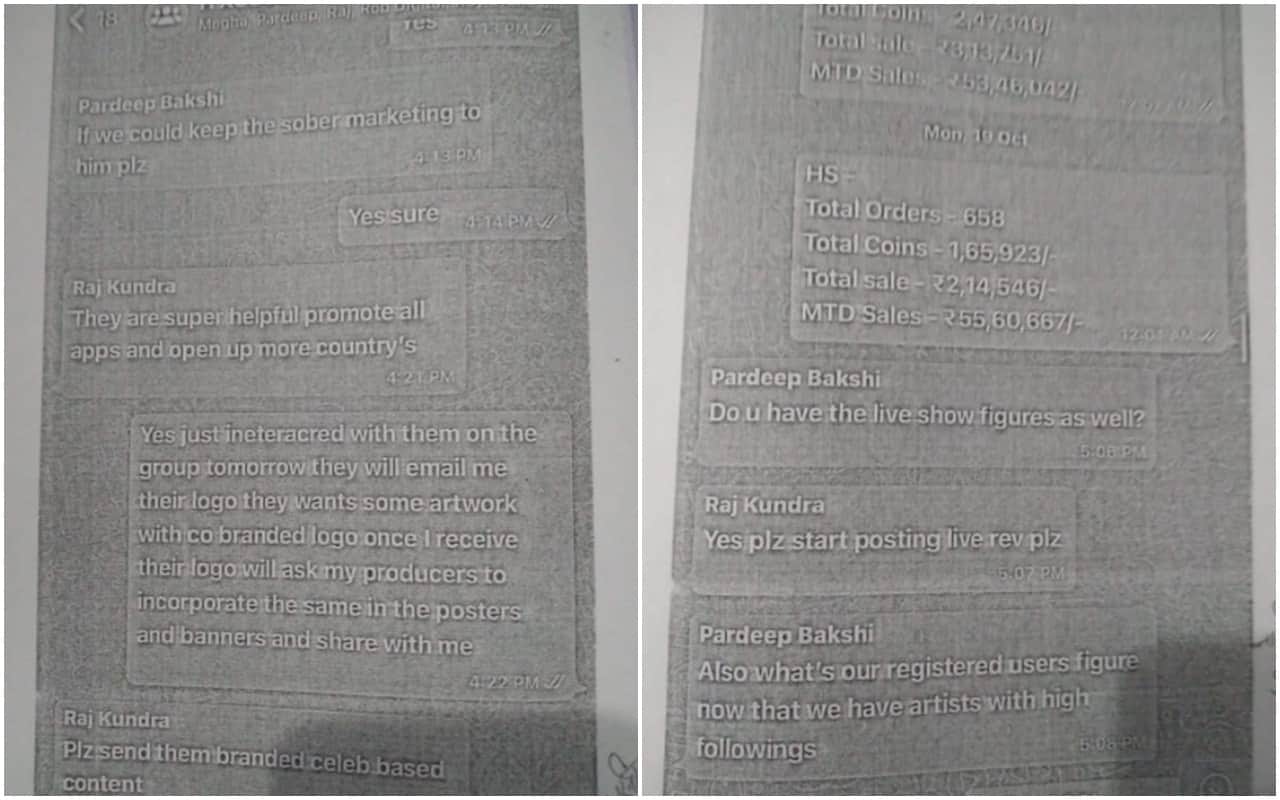 18
Megha, Pardeep, Raj, Rob
Yes
4:13 PM
Pardeep Bakshi
If we could keep the sober marketing to
him plz
4:13 PM
Yes sure
4:14 PM
Raj Kundra
They are super helpful promote all
apps and open up more country's
4:21 PM
Yes just ineteracred with them on the
group tomorrow they will email me
their logo they wants some artwork
with co branded logo once I receive
their logo will ask my producers to
incorporate the same in the posters
and banners and share with me
4:22 PM
Raj Kundra
Plz send them branded celeb based
content
Total Coins - 2,47,346/-
Total sale - ₹3,13,251/-
MTD Sales - ₹53,46,042/-
Mon, 19 Oct
HS -
Total Orders - 658
Total Coins - 1,65,923/-
Total sale - ₹2,14,546/-
MTD Sales - ₹55,60,667/-
12:01 AM
Pardeep Bakshi
Do u have the live show figures as well?
5:06 PM
Raj Kundra
Yes plz start posting live rev plz
5:07 PM
Pardeep Bakshi
Also what's our registered users figure
now that we have artists with high
followings
5:08 PM